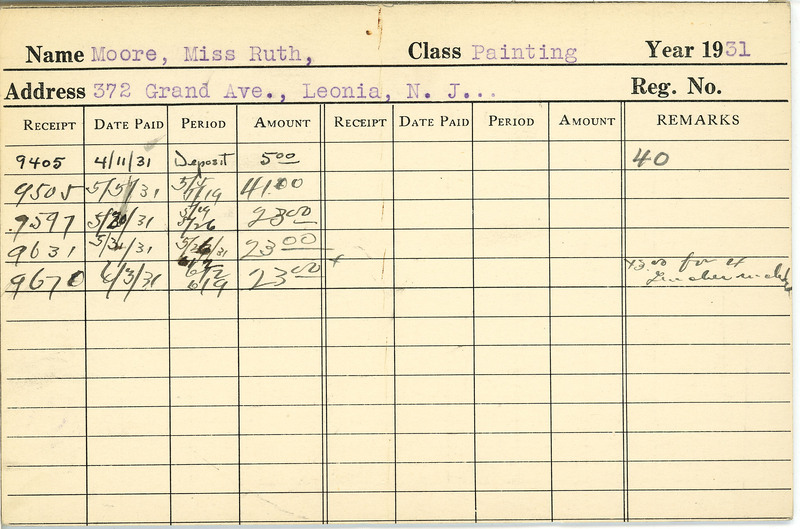 Name Moore, Miss Ruth, Class Painting Year 1931
Address 372 Grand Ave., Leonia, N. J... Reg. No.
RECEIPT DATE PAID PERIOD AMOUNT RECEIPT DATE PAID PERIOD AMOUNT REMARKS
9405 4/11/31 Deposit 5.00 40
9505 5/5/31 41.00
9597 5/20/31 5/26 23.00
9631 23.00
9670 6/3/31 6/2 6/9 23.00 for 4